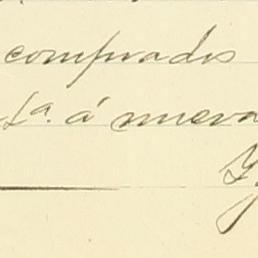 comprados
La. á nueva